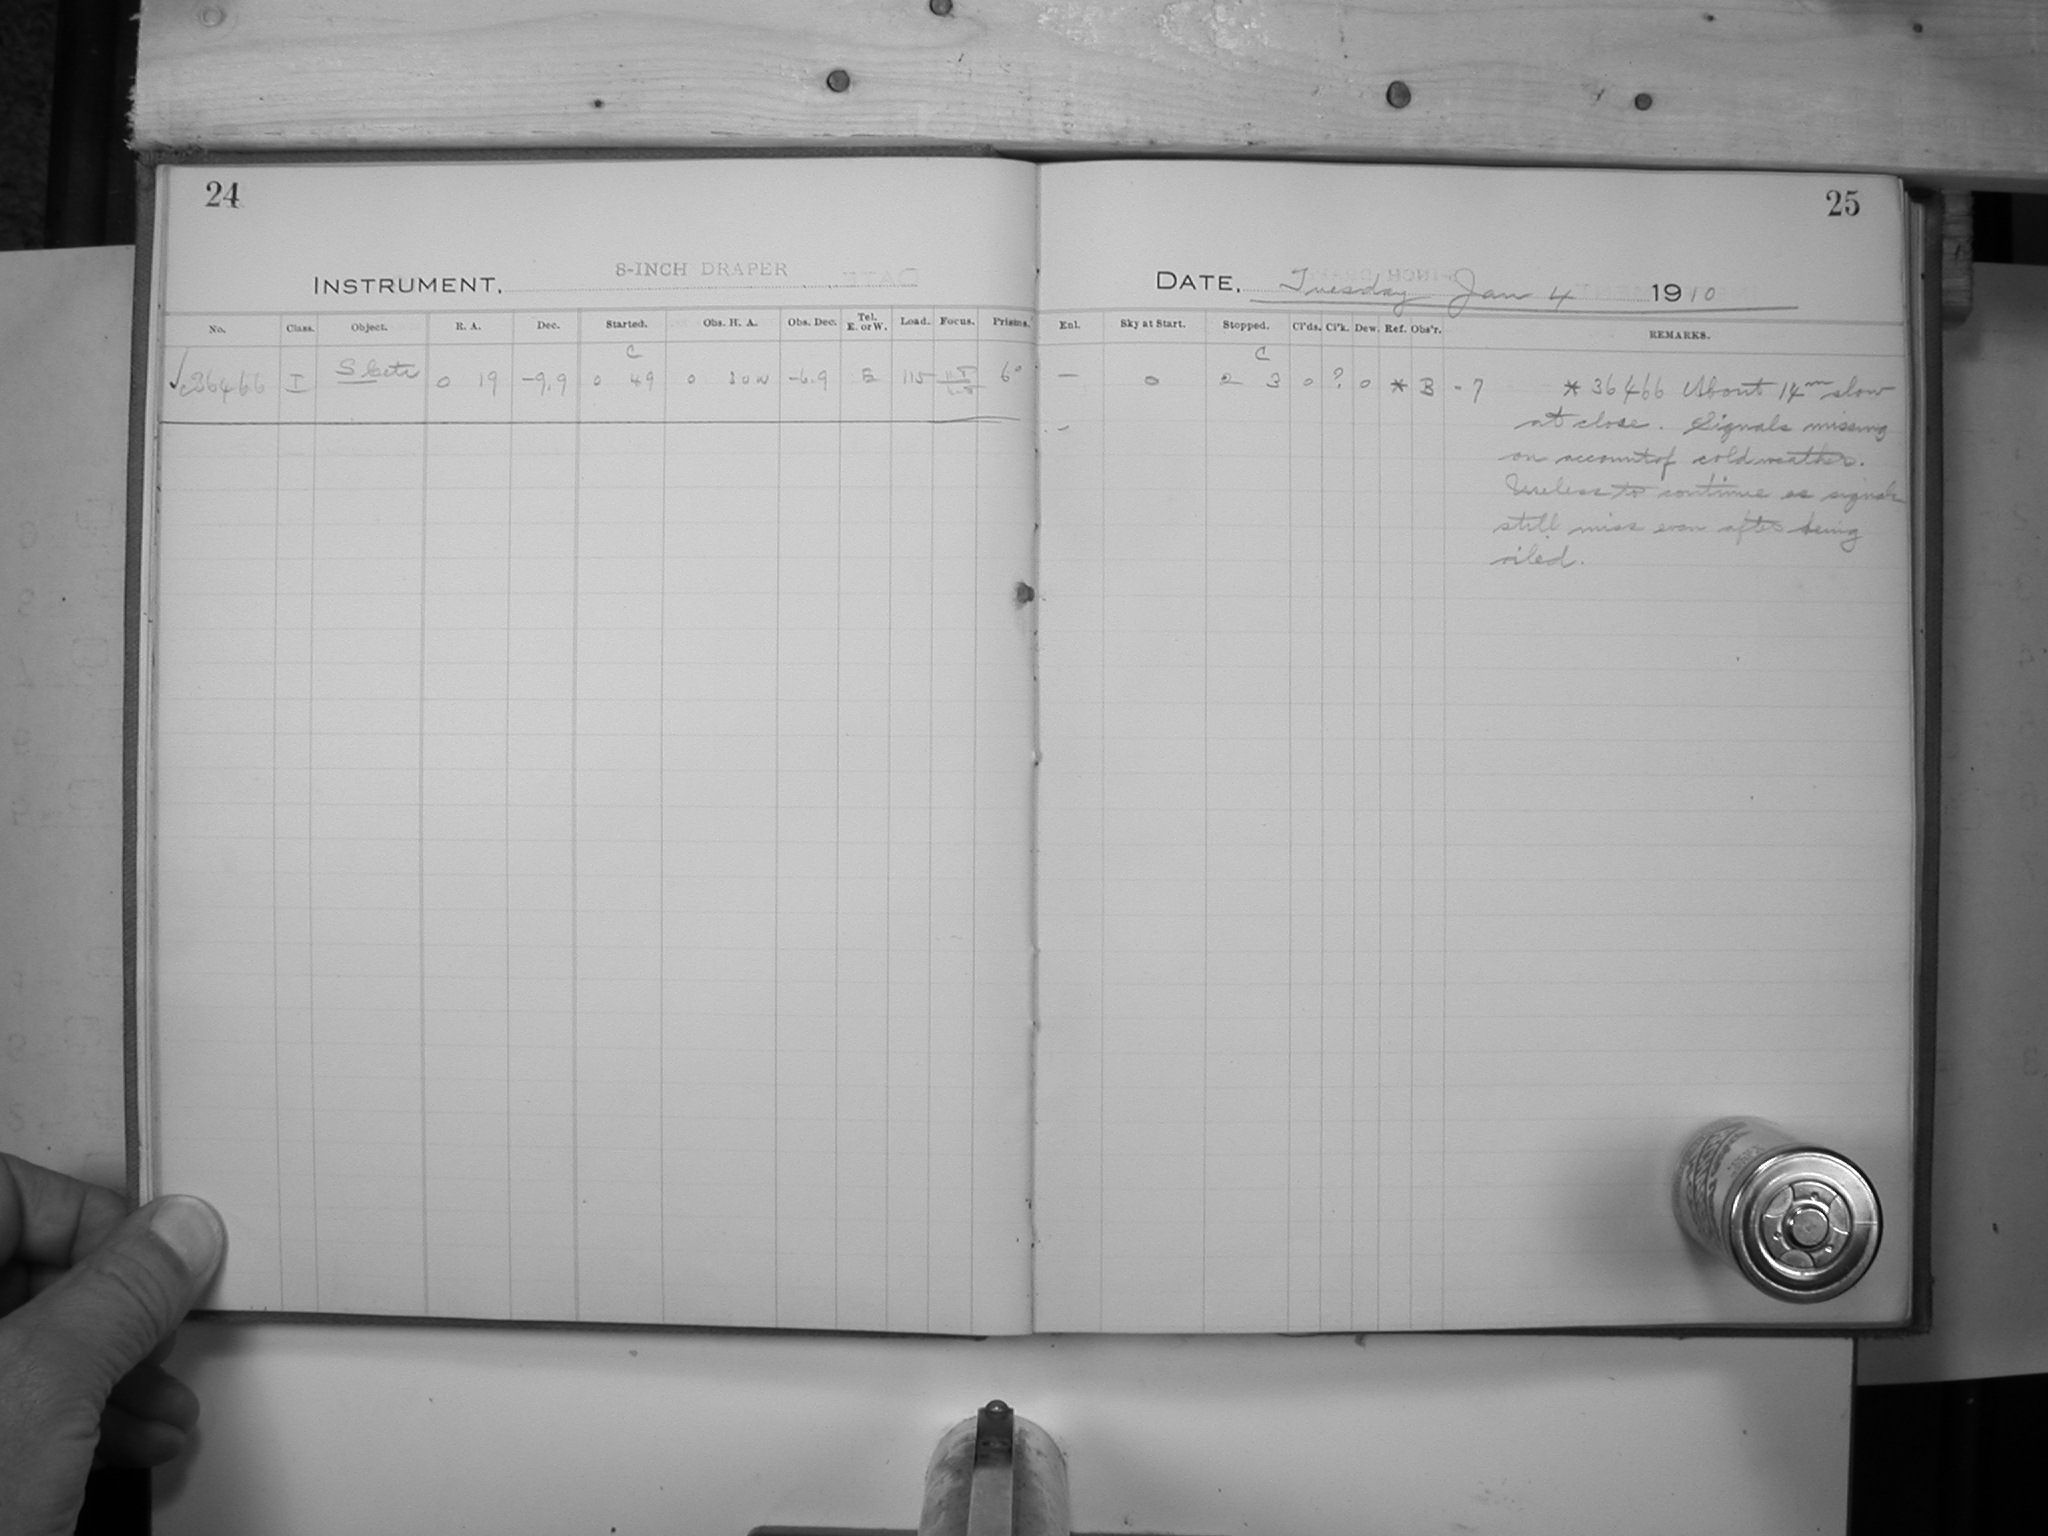 24
INSTRUMENT. 8-INCH DRAPER
No. Class. Object. R. A. Dec. Started. Obs. H. A. Obs. Dec. Tel. E. or W. Load. Focus. Prisms.
C
√c36466 I S Ceti 0 19 -9.9 0 49 0 30 W -6.9 E 115 6°
25
DATE. Tuesday Jan 4 1910
Enl. Sky at Start. Stopped. Cl'ds. Cl'k. Dew. Ref. Obs'r. REMARKS.
C
— 0 2 3 0 ? 0 * B -7 * 36466 About 14m slow
at close. Signals missing
on account of cold weather.
Useless to continue as signals
still miss even after being
oiled.